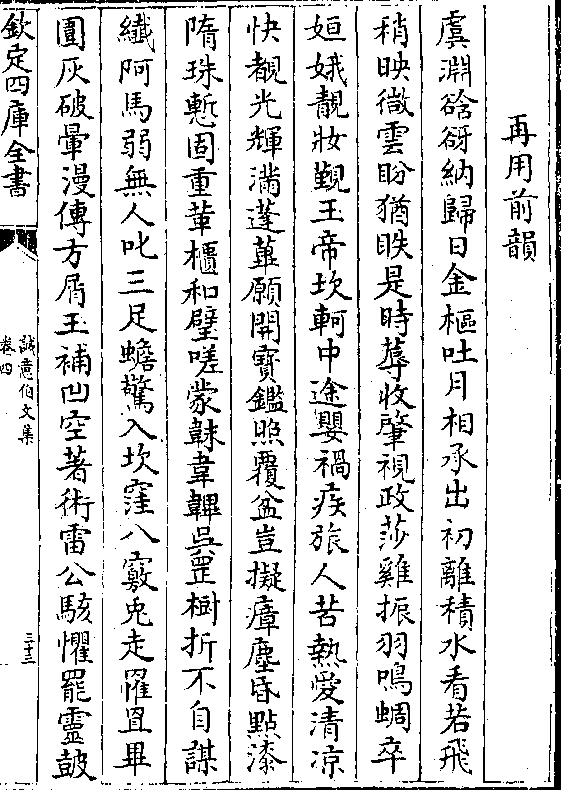 再用前韻
虞淵𥧲谺納歸日金樞吐月相承出初離積水看若飛
稍映微雲盼猶眣是時蓐收肇視政莎雞振羽鳴蜩卒
姮娥靚妝覲王帝坎軻中途嬰禍疾旅人苦熱愛清凉
快覩光輝滿蓬蓽願開寶鑑照覆盆豈擬瘴塵昏點漆
隋珠慙固重葷櫃和璧嗟蒙韎韋韠吳罡樹折不自謀
纖阿馬弱無人叱三足蟾驚入坎窪八竅兎走罹罝畢
圍灰破暈漫傳方屑玉補凹空著術雷公駭懼罷靈鼓
欽定四庫全書
誠意伯文集
卷四
三十三